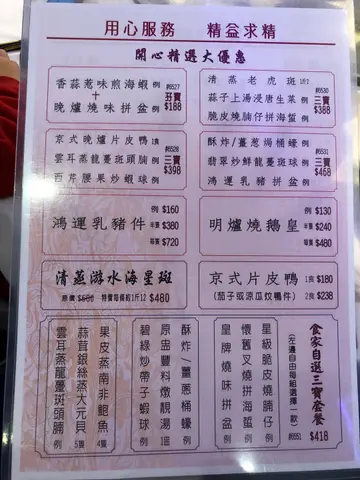 用心服務 精益求精
開心精選大優惠
香蒜惹味煎海蝦 例 #6527
+ 孖寶
晚爐燒味拼盆 例 $188
清蒸老虎斑 1斤2 #6530
蒜子上湯浸唐生菜 例 三寶
脆皮燒腩仔拼海蜇 例 $388
京式晚爐片皮鴨 1隻 #6528
雲耳蒸龍躉斑頭腩 例 三寶
西芹腰果炒蝦球 例 $398
酥炸/薑葱焗桶蠔 例 #6531
翡翠炒鮮龍躉斑球 例 三寶
鴻運乳豬拼盆 例 $468
鴻運乳豬件 例 $160
半隻 $380
每隻 $720
明爐燒鵝皇 例 $130
半隻 $240
每隻 $480
清蒸游水海星斑
原價 $680 特價每條約1斤12 $480
京式片皮鴨 1食 $180
(茄子或涼瓜炆鴨件) 2食 $238
果皮蒸南非鮑魚 4隻
蒜茸銀絲蒸大元貝 5隻
雲耳蒸龍躉斑頭腩 例
酥炸/薑葱桶蠔 例
原盅豐料燉靚湯 1盅
碧綠炒帶子蝦球 例
星級脆皮燒腩仔 例
懷舊叉燒拼海蜇 例
皇牌燒味拼盆 例
食家自選三寶套餐
(左邊自由每組選擇一款)
#6551
$418